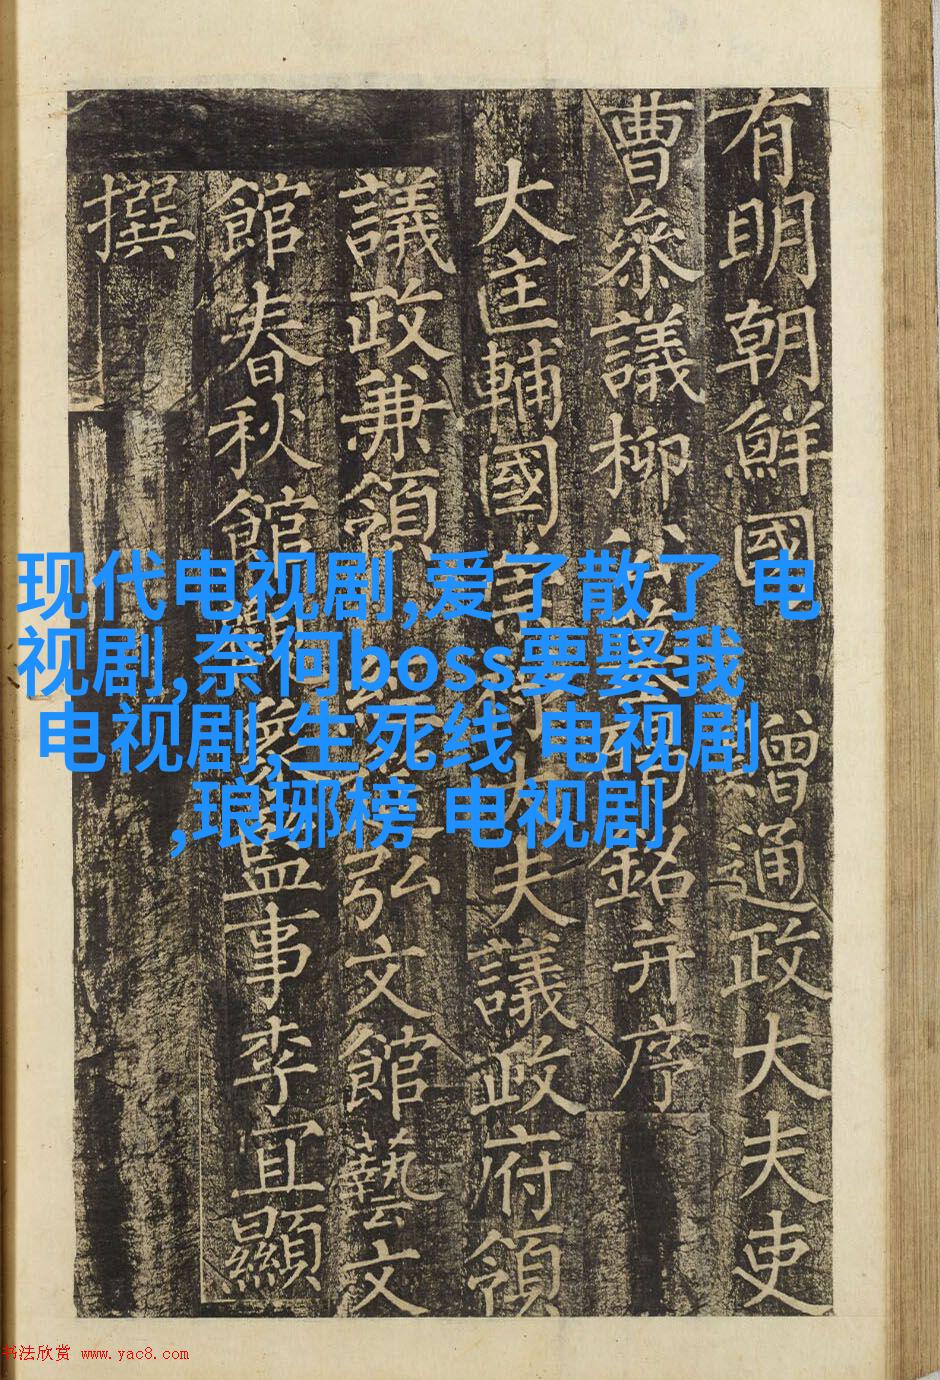 有明朝鮮國 贈通政大夫吏
曹叅議柳公銘并序
大匡輔國大夫議政府領
議政兼領弘文館藝文
館春秋館監事李宜顯
撰
现代电视剧,爱了散了 电
视剧,奈何boss要娶我
电视剧,生死线 电视剧
,琅琊榜 电视剧
书法欣赏 www.yac8.com